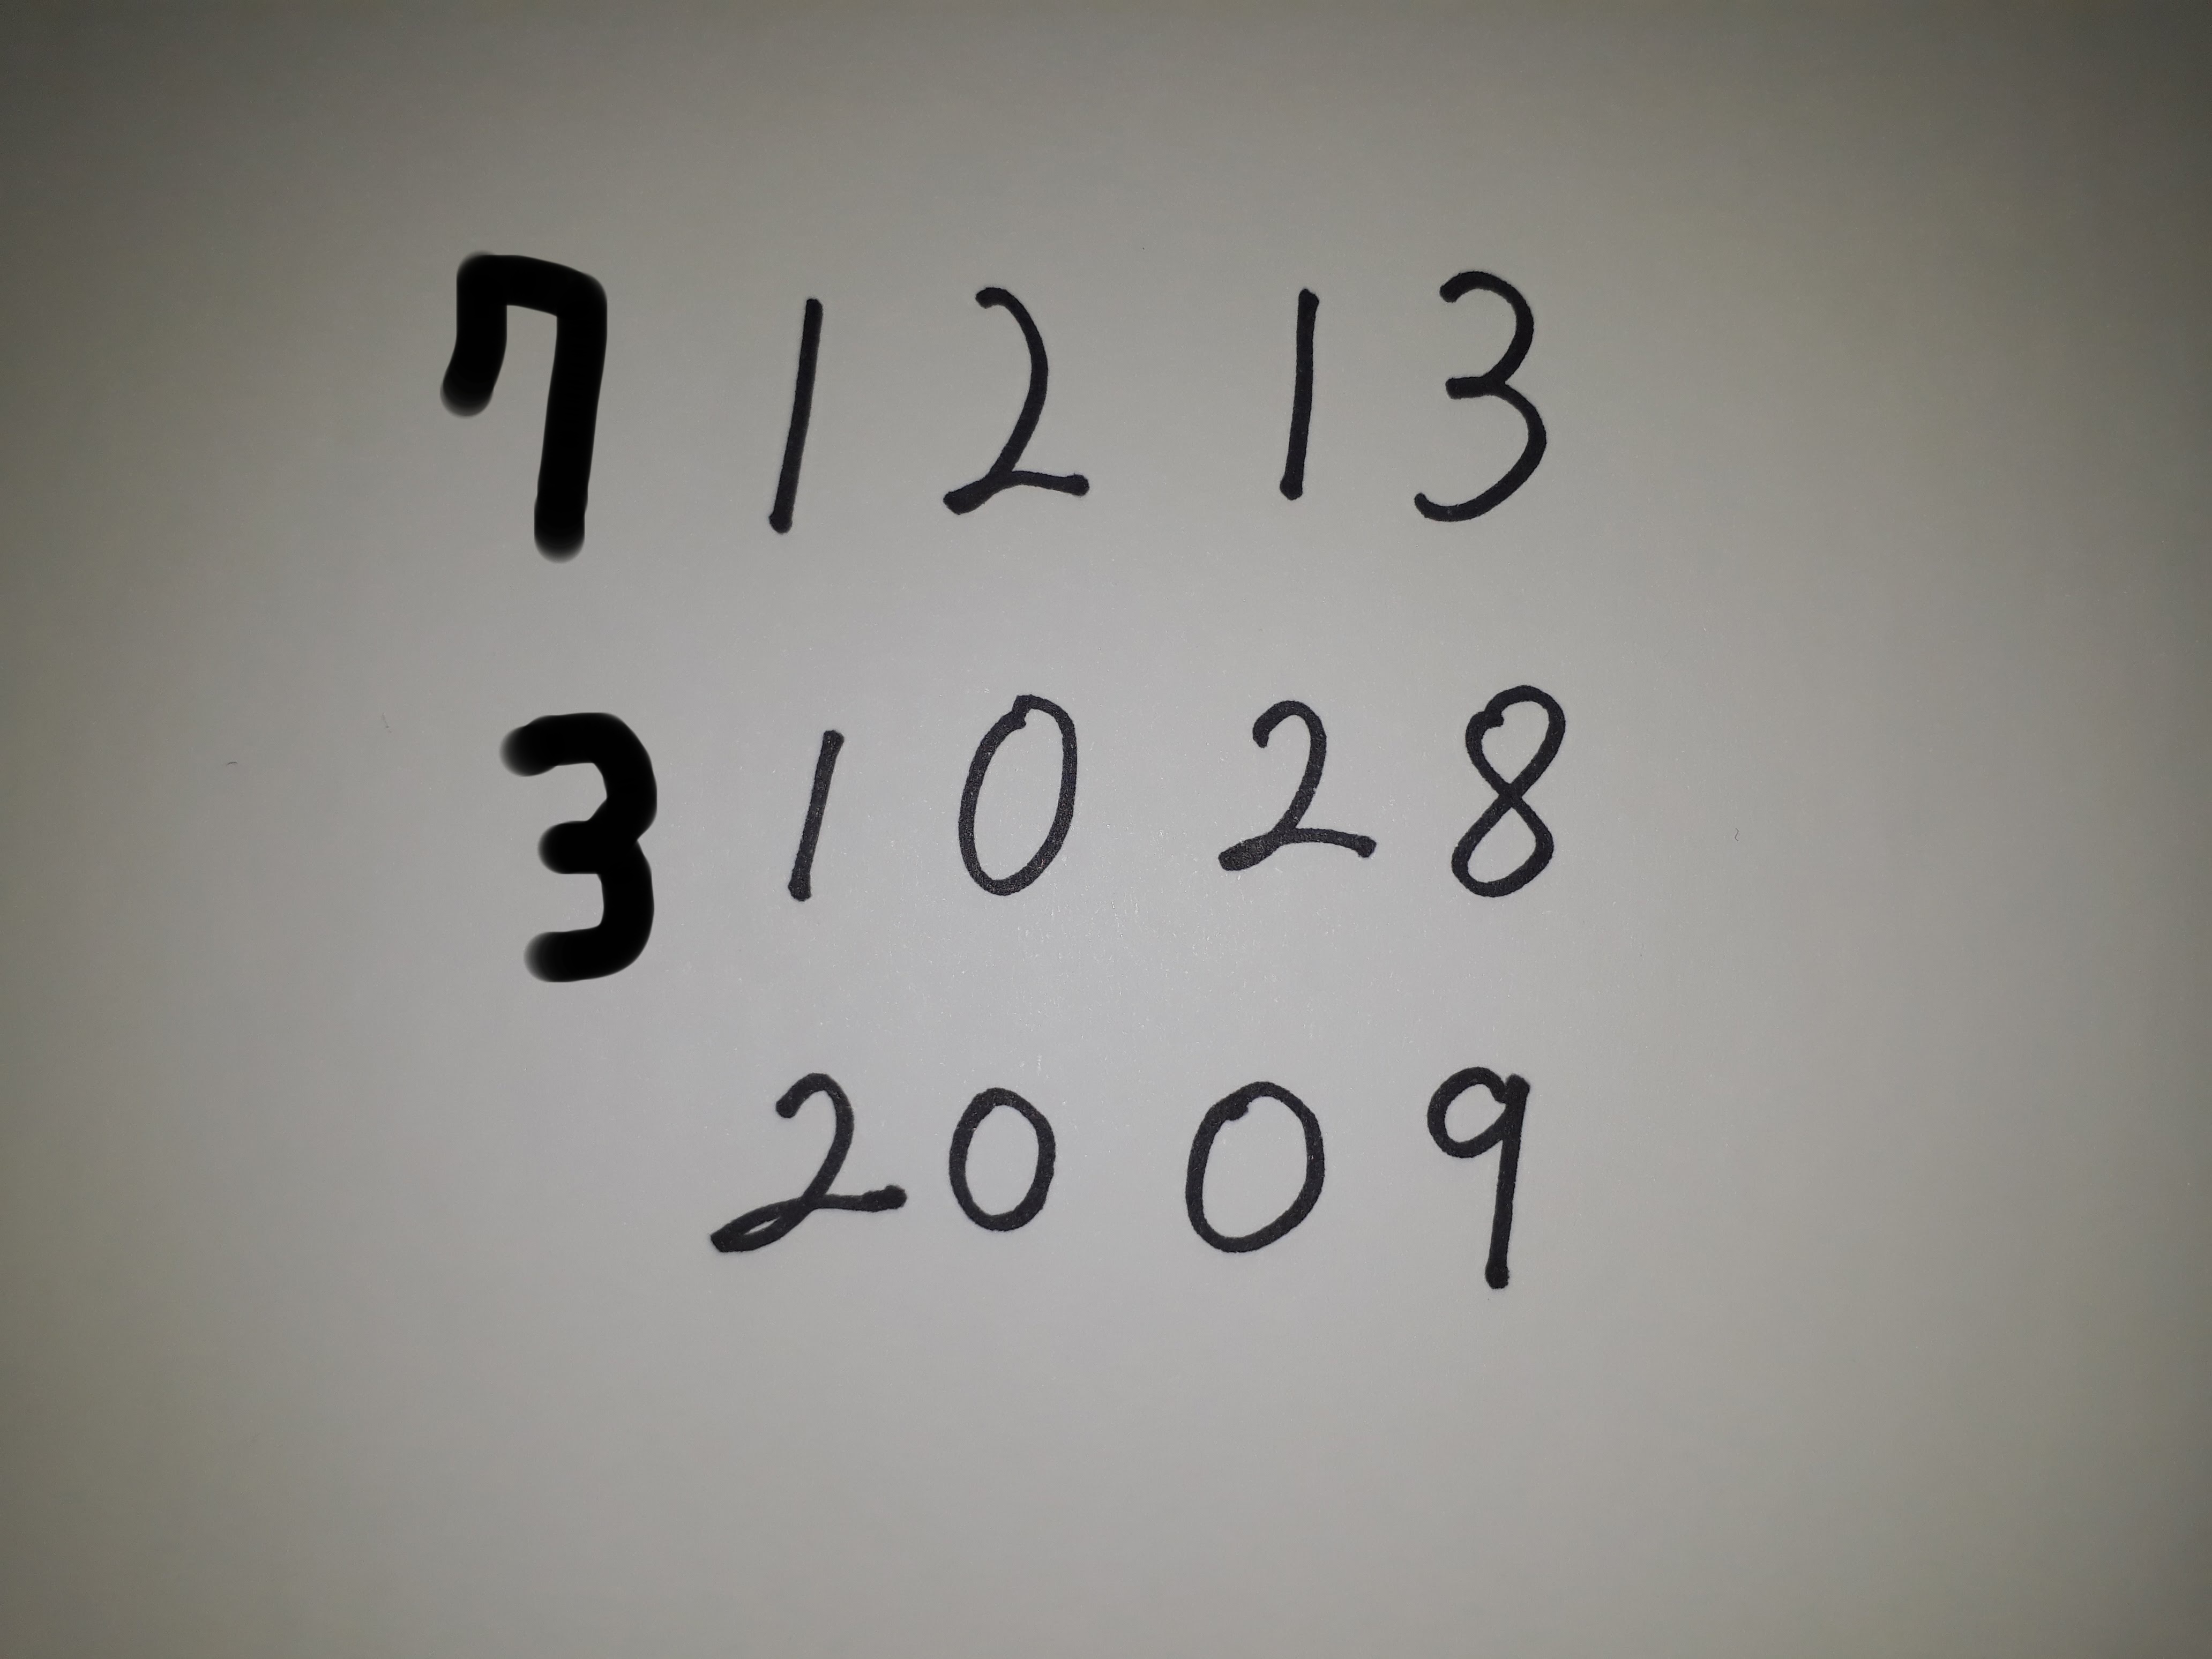 7 1 2 1 3
3 1 0 2 8
2 0 0 9